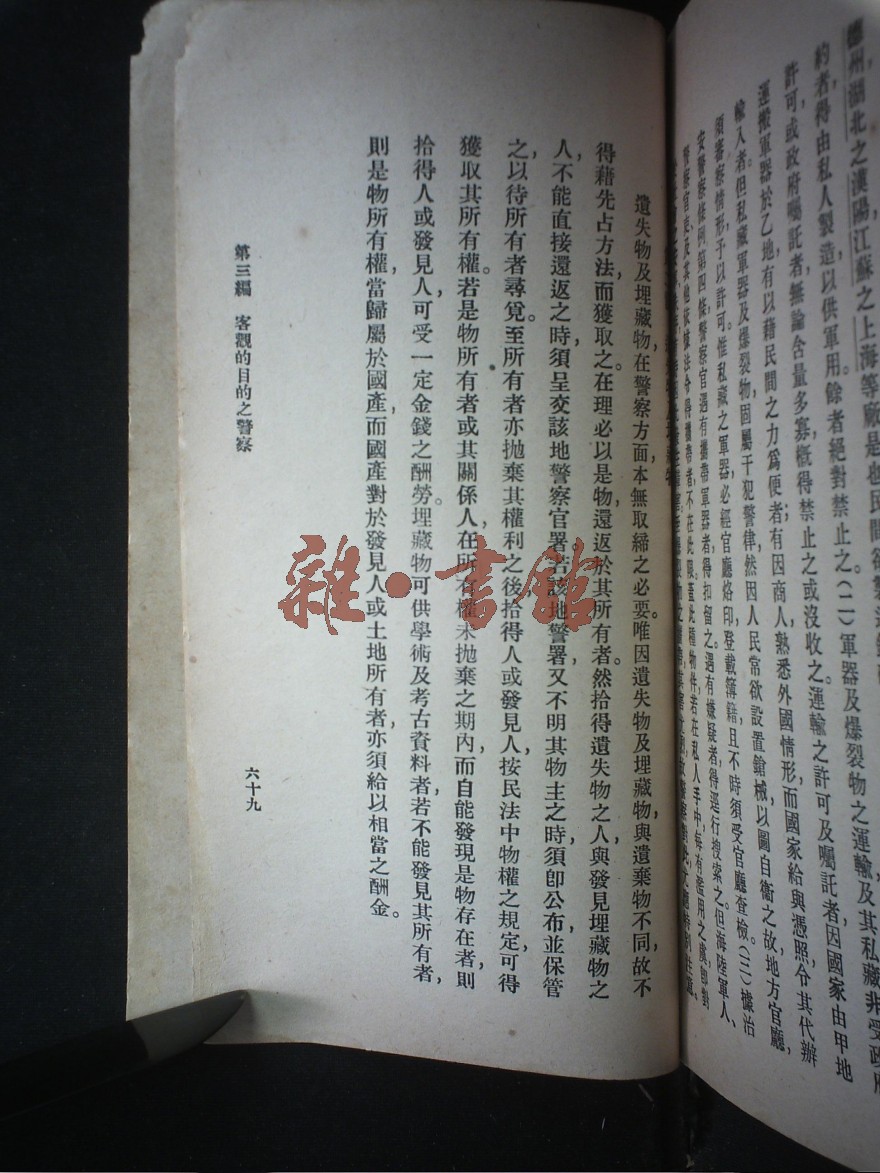 德州湖北之漢陽江蘇之上海等廠是也民間欲製造
約者得由私人製造以供軍用餘者絕對禁止之(二)軍器及爆裂物之運輸及其私藏非受政府
許可或政府囑託者無論含量多寡概得禁止之或沒收之運輸之許可及囑託者因國家由甲地
運搬軍器於乙地有以藉民間之力爲便者;有因商人熟悉外國情形而國家給與憑照令其代辦
輸入者。但私藏軍器及爆裂物固屬干犯警律然因人民常欲設置鎗械以圖自衞之故地方官廳,
須審察情形予以許可。惟私藏之軍器必經官廳烙印登載簿籍且不時須受官廳查檢。(三)據治
安警察條例第四條警察官遇有攜帶軍器者得扣留之。遇有嫌疑者得逕行搜索之。但海陸軍人、
警察官吏及其他依據法令得攜帶者不在此限。蓋此種物件若在私人手中每有濫用之虞
遺失物及埋藏物在警察方面本無取締之必要。唯因遺失物及埋藏物與遺棄物不同,故不
得藉先占方法而獲取之。在理必以是物還返於其所有者。然拾得遺失物之人與發見埋藏物之
人不能直接還返之時,須呈交該地警察官署。若該地警署又不明其物主之時,須卽公布並保管
之,以待所有者尋覓。至所有者亦拋棄其權利之後,拾得人或發見人,按民法中物權之規定,可得
獲取其所有權。若是物所有者或其關係人,在所有權未拋棄之期內,而自能發現是物存在者,則
拾得人或發見人,可受一定金錢之酬勞。埋藏物可供學術及考古資料者,若不能發見其所有者,
則是物所有權,當歸屬於國產,而國產對於發見人或土地所有者,亦須給以相當之酬金。
第三編 客觀的目的之警察
六十九
雜·書館